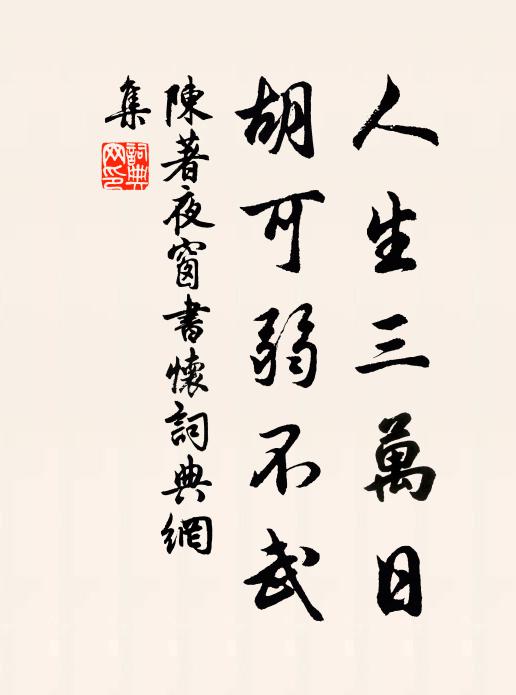 人生三萬日
胡可弱不武
陳著夜窗書懷詞典網
集
詞典
网印